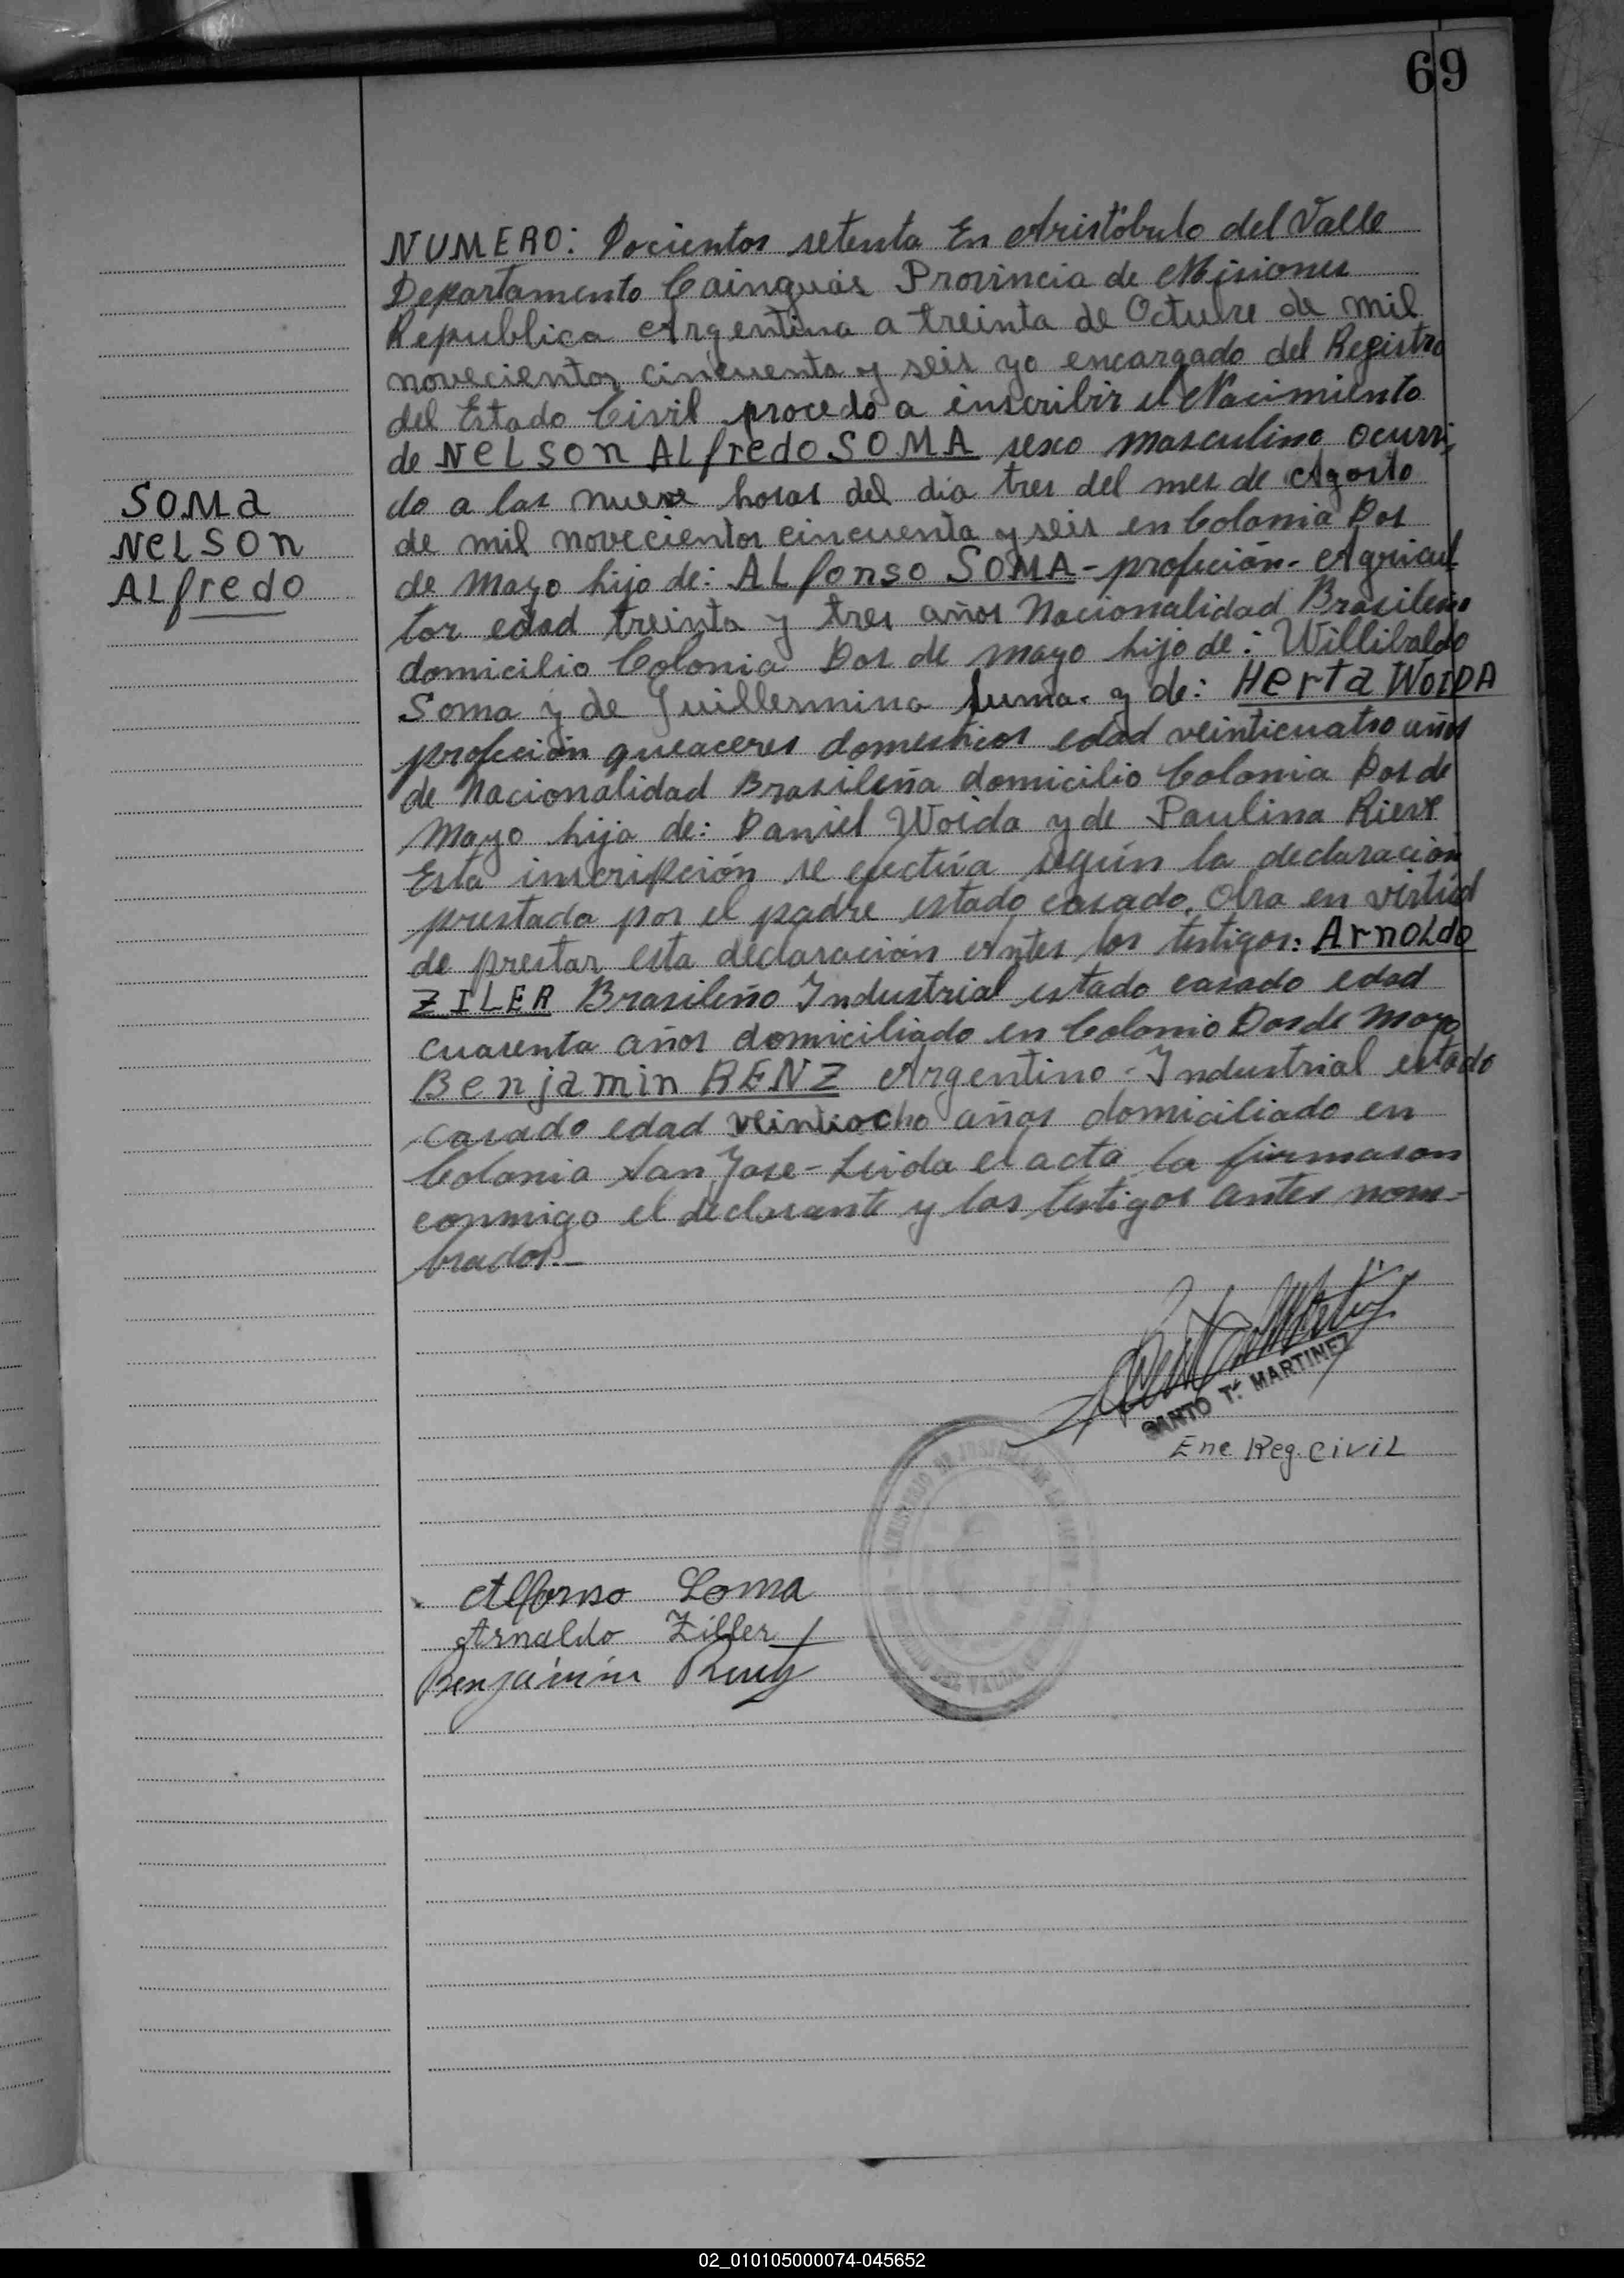 69
NUMERO: Docientos setenta En Aristóbulo del Valle
Departamento Cainguás Provincia de Misiones
Republica Argentina a treinta de Octubre de mil
novecientos cincuenta y seis yo encargado del Registro
del Estado Civil procedo a inscribir el Nacimiento
de NELSON ALfredo SOMA sexo masculino ocurri
do a las nueve horas del dia tres del mes de Agosto
de mil novecientos cincuenta y seis en Colonia Dos
de Mayo hijo de: ALfonso SOMA - profeción - Agricul
tor edad treinta y tres años Nacionalidad Brasileño
domicilio Colonia Dos de mayo hijo de: Willibaldo
Soma y de Guillermina y de: Herta WOIDA
profeción queaceres domesticos edad veinticuatro años
de Nacionalidad Brasileña domicilio Colonia Dos de
Mayo hija de: Daniel Woida y de Paulina
Esta inscripción se efectúa según la declaración
prestada por el padre estado casado. Obra en virtúd
de prestar esta declaración antes los testigos: Arnoldo
ZILER Brasileño Industrial estado casado edad
cuarenta años domiciliado en Colonia Dos de Mayo
Benjamin RENZ Argentino - Industrial estado
casado edad veintiocho años domiciliado en
Colonia San Jose - Leida el acta la firmaron
conmigo el declarante y los testigos antes nom-
brados.-
SOMA
NELSON
ALfredo
SANTO T. MARTINEZ
Enc. Reg. CiviL
Alfonso Soma
Arnaldo Ziller
Benjamin
02_010105000074-045652